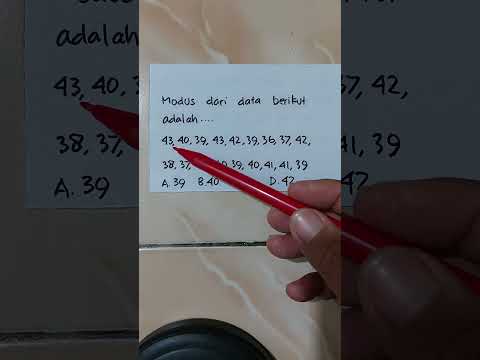 Modus dari data berikut
adalah....
43, 40, 39, 43, 42, 39, 36, 37, 42,
38, 37, 39, 40, 41, 41, 39
A. 39 B. 40 D. 42